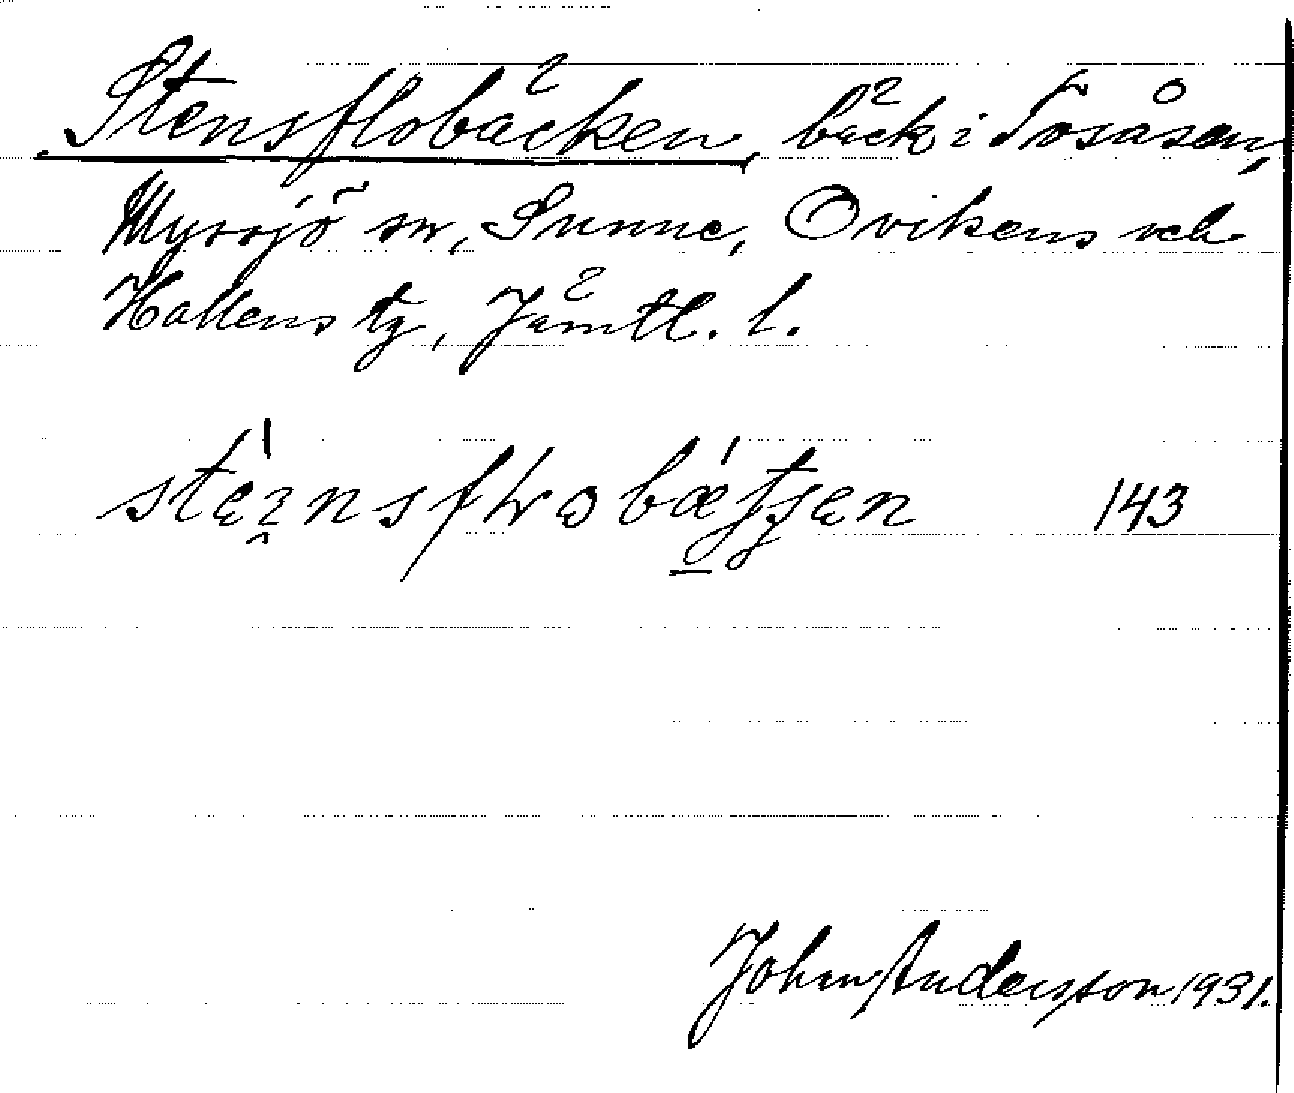 Stensflobäcken, bäck i Tosåsen,
Myssjö sn, Sunne, Ovikens och
Hallens tg, Jämtl. l.
143
Johan Andersson 1931.